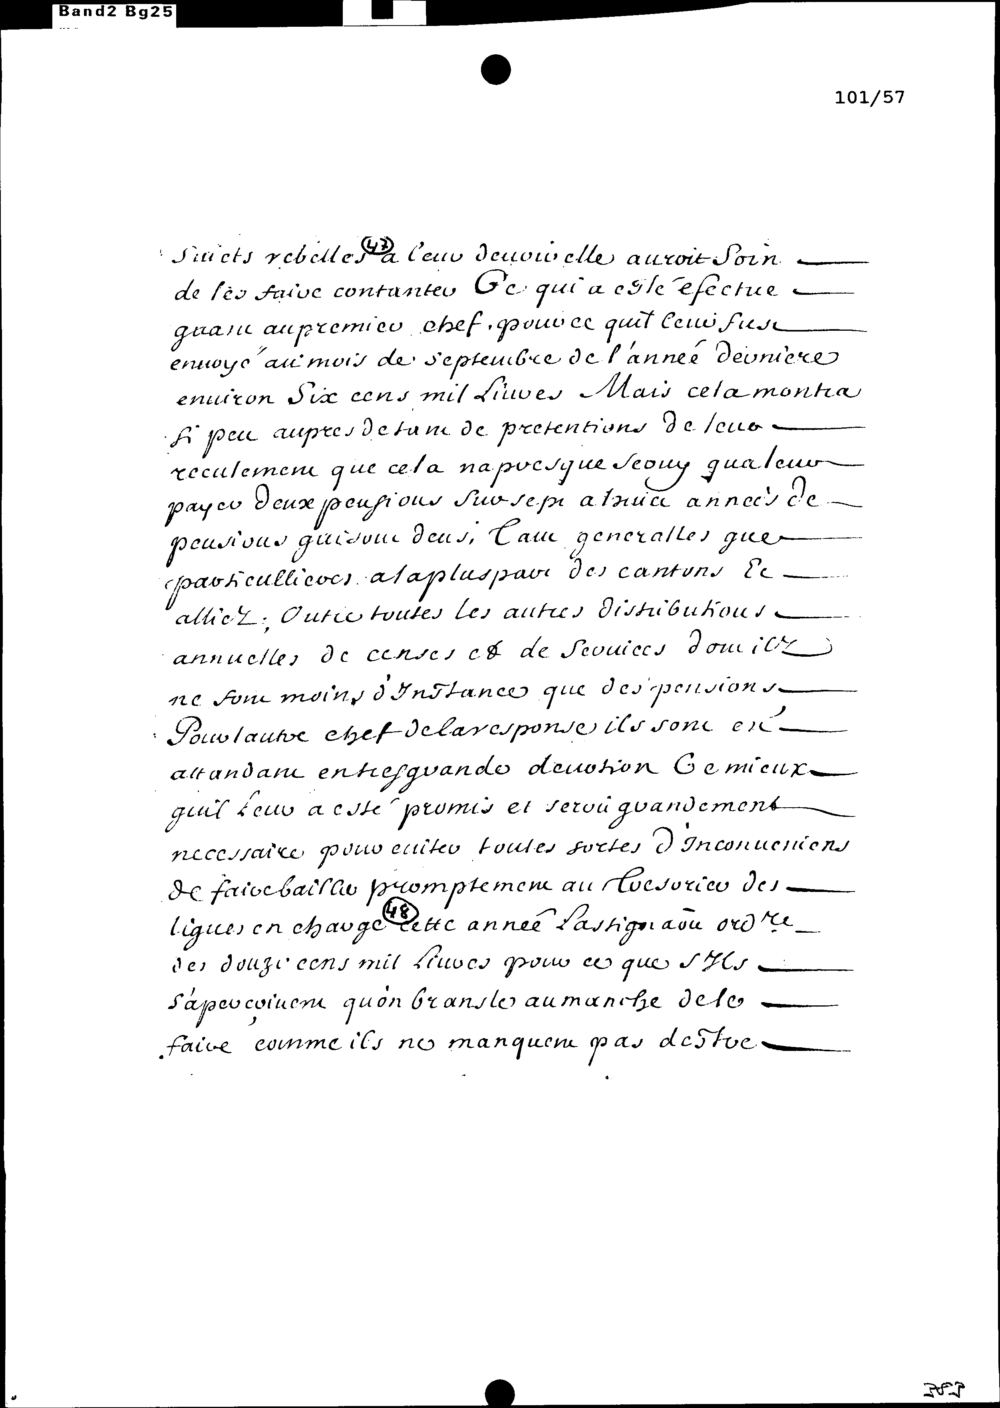 Band2 Bg25
101/57
suiets rebelles (47) a leur deuoir elle auroit soin
de les faire contanter Ce qui a esté éfectue
quant au premier chef, pour ce quil leur fust
enuoyé au mois de septembre de l'anneé derniere
enuiron Six cens mil Liures Mais cela montra
si peu aupres de tant de pretentions de leur
reculement que cela na presque seruy qua leur
payer deux pensions sur sept a huict anneés de
pensions qui sont deues, tant generalles que
particullieres a la plus part des cantons Et
alliez; Outre toutes les autres distributions
annuelles de censes et de seruices dont ilz
ne font moins d'Instance que des pensions
Pour lautre chef de la response ils sont en
attandant en tres grande deuotion Ce mieux
quil leur a esté promis et seroit grandement
necessaire pour euiter toutes sortes d'Inconueniens
de faire bailler promptement au tresorier des
ligues en charge (48) cette anneé Lassignaõn ord.re
des douze cens mil liures pour ce que sIls
s'aperçoiuent quón bransle au manche de le
faire comme ils ne manquent pas destre